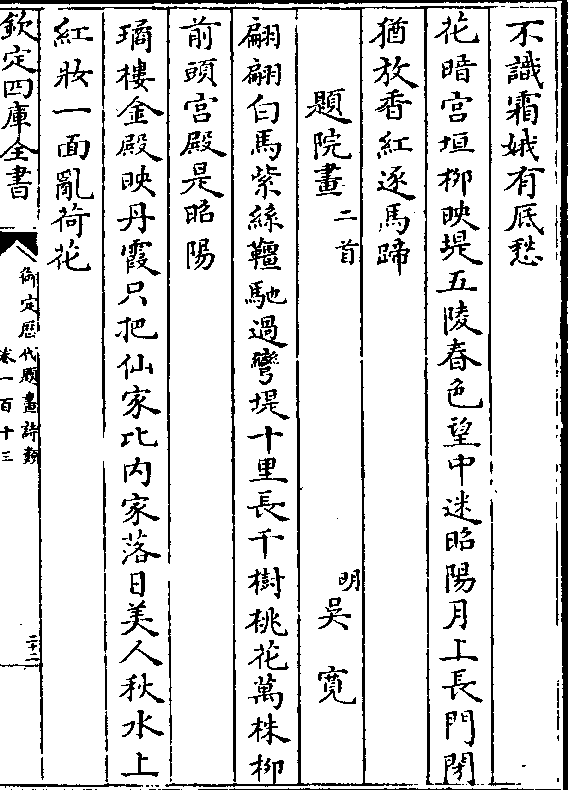 不識霜娥有底愁
花暗宫垣柳映堤五陵春色望中迷昭陽月上長門閉
猶放香紅逐馬蹄
題院畫二首
明吳寛
翩翩白馬紫絲韁馳過彎堤十里長千樹桃花萬株柳
前頭宫殿是昭陽
璚樓金殿映丹霞只把仙家比内家落日美人秋水上
紅妝一面亂荷花
欽定四庫全書
御定歴代題畫詩類
卷一百十三
二十二